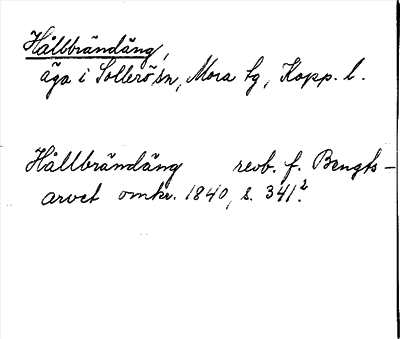 Hållbrändäng,
äga i Sollerö sn, Mora tg, Kopp. l.
Hållbrändäng renb. f. Bengts-
arvet omkr. 1840, s. 341².